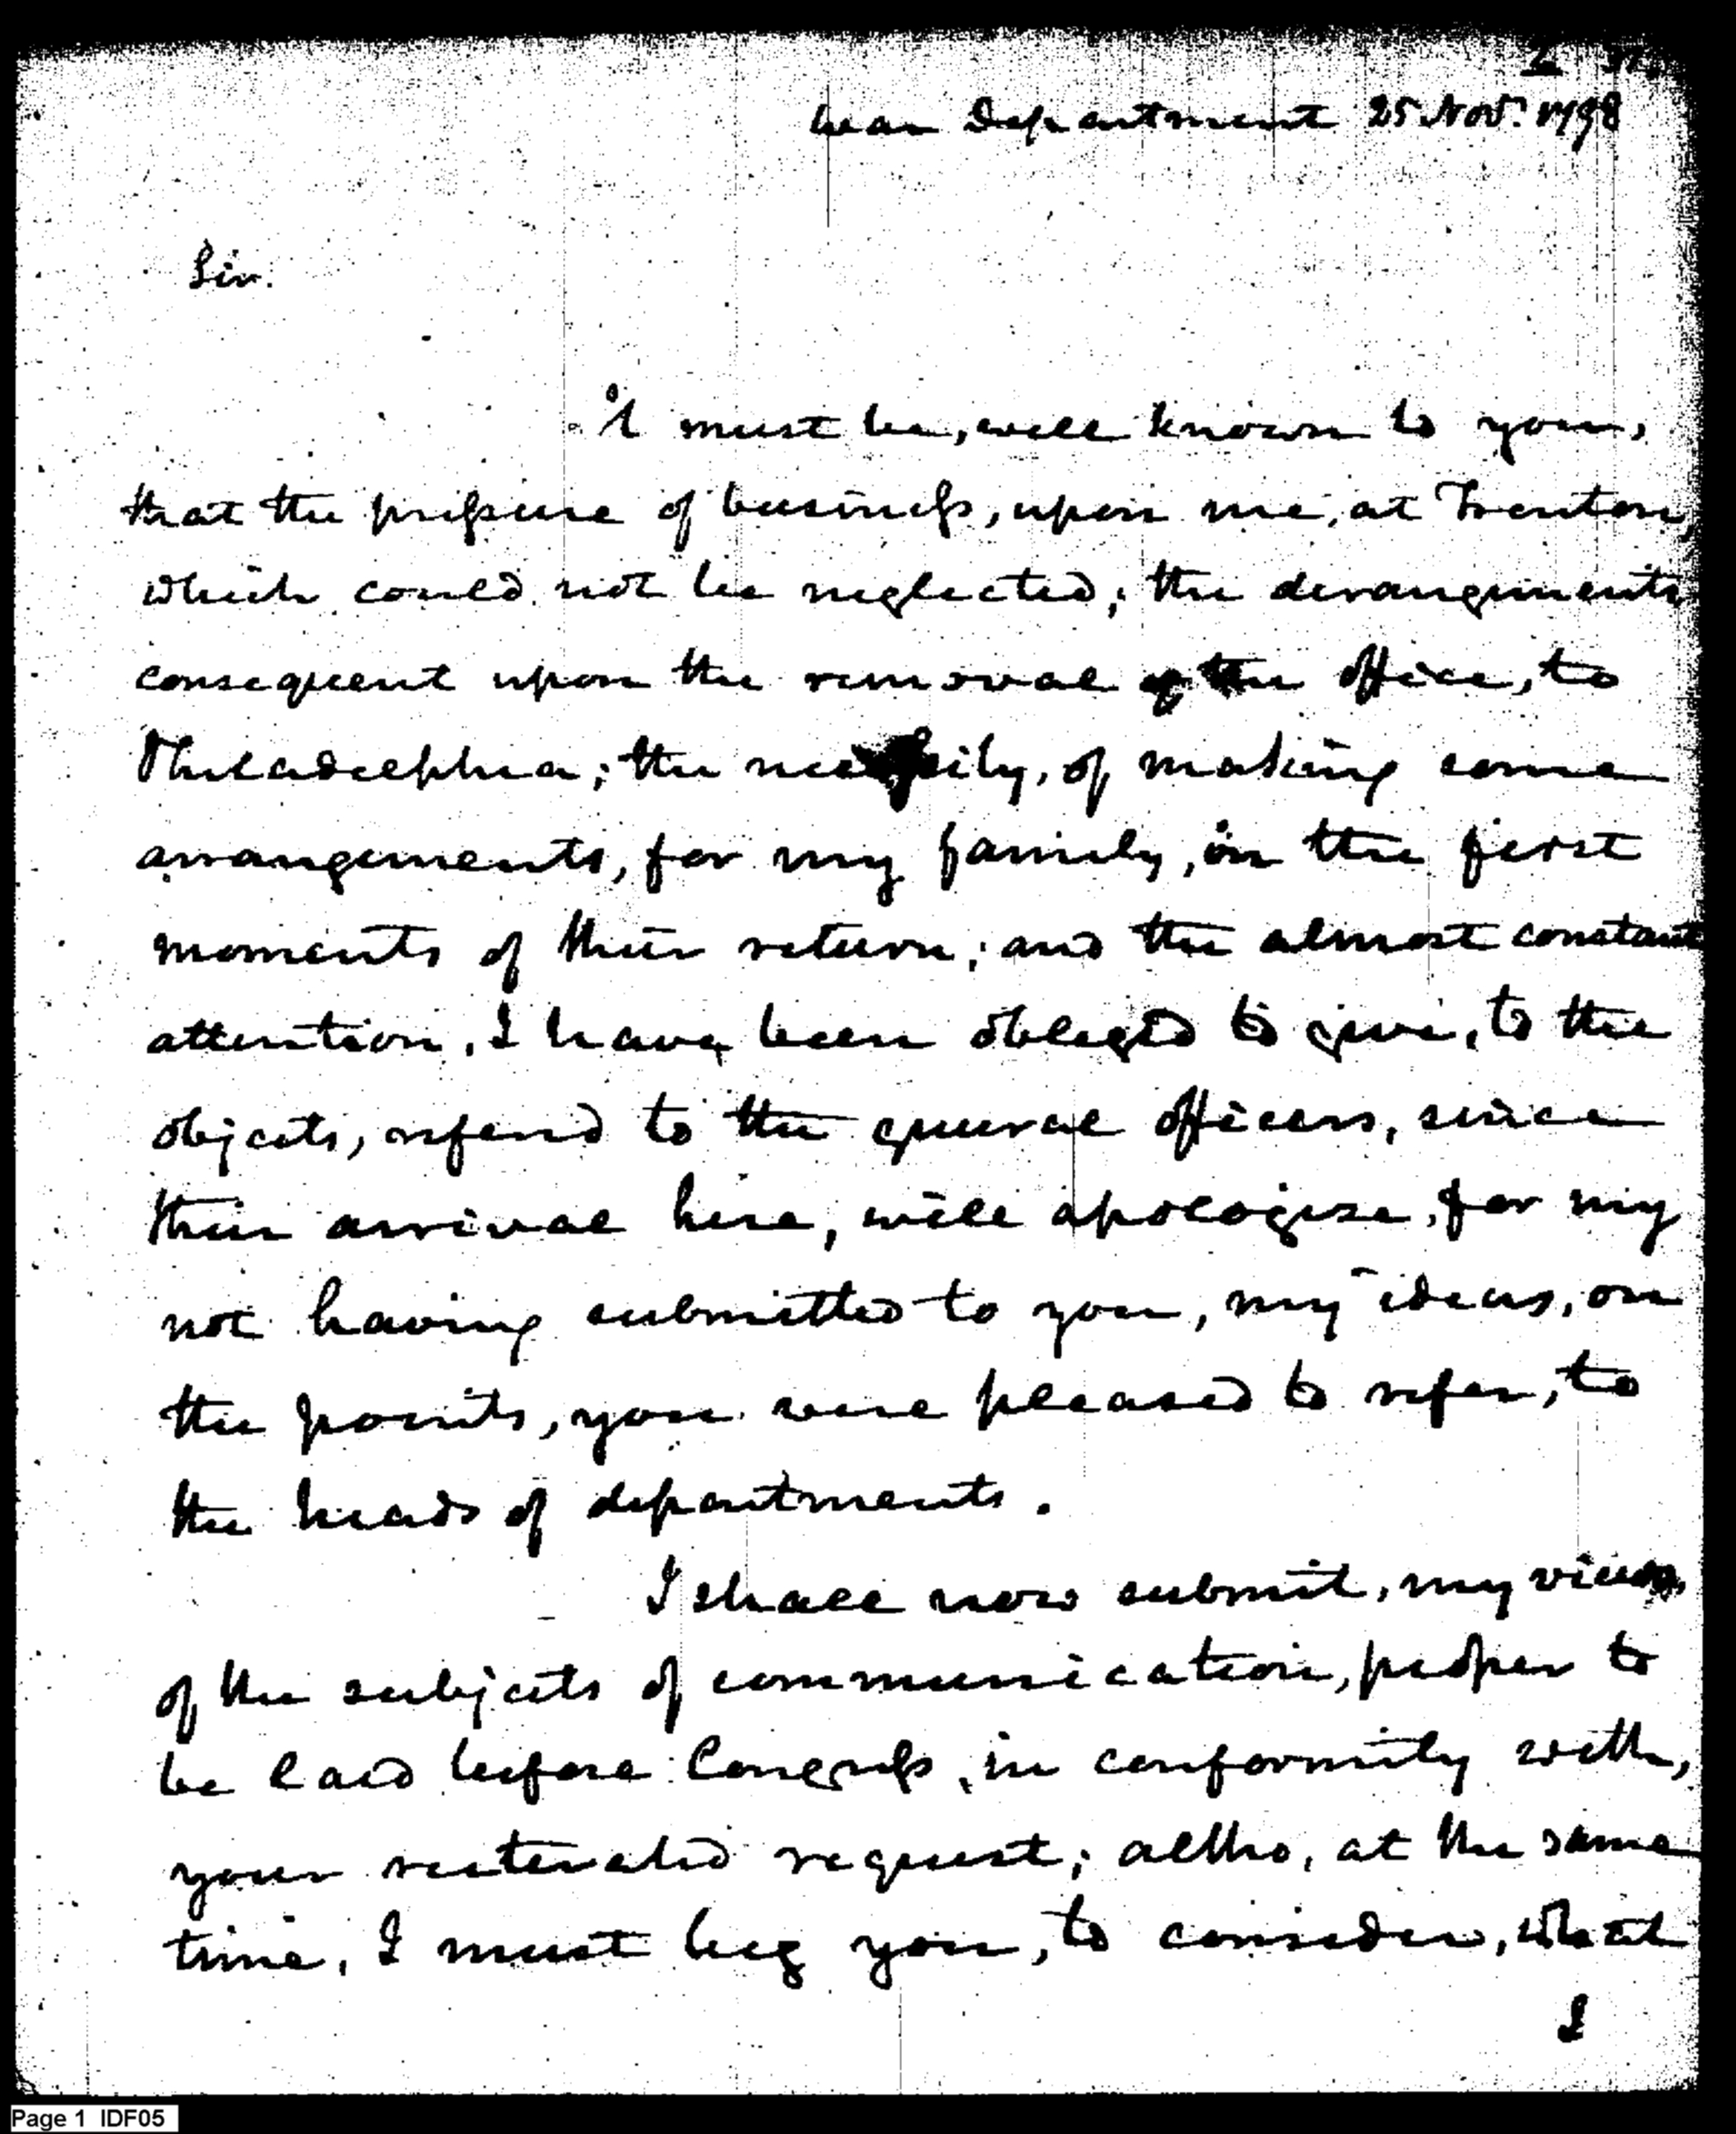 War Department 25 Nov.r 1798
Sir.
It must be, well known to you,
that the pressure of business, upon me, at Trenton,
which could not be neglected; the derangements
consequent upon the removal of the office, to
Philadelphia; the necessity, of making some
arrangements, for my family, in the first
moments of their return; and the almost constant
attention, I have been obliged to give, to the
objects, refered to the general officers, since
their arrival here, will apologise, for my
not having submitted to you, my ideas, on
the points, you were pleased to refer, to
the heads of departments.
I shall now submit, my views,
of the subjects of communication, proper to
be laid before Congress, in conformity with,
your reiterated request; altho, at the same
time, I must beg you, to consider, what
I
Page 1 IDF05